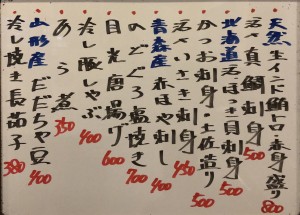 天然生インド鮪トロ赤身盛り 800
活〆真鯛刺身 500
北海道活ほっき貝刺身 500
かつお刺身・土佐造り 500
活〆いさき刺身 450
青森産赤ほや刺し 400
のどぐろ塩焼き 700
目光唐揚げ 600
冷し豚しゃぶ 400
あら煮 350
山形産だだちゃ豆 400
冷し焼き長茄子 380